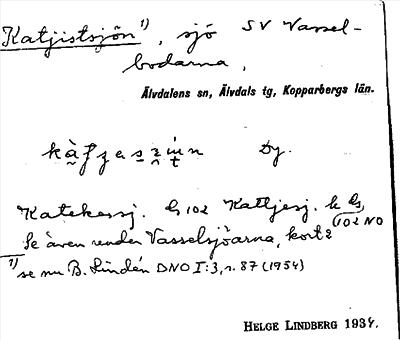 Katjistsjön 1), sjö SV Vassel-
bodarna,
Älvdalens sn, Älvdals tg, Kopparbergs län.
Dy.
Katekessj. G 102 Kattjesj. k
102 NO
Se även under Vasselsjöarna, kort 2
1) se nu B. Lindén DNO I:3, s. 87 (1954)
HELGE LINDBERG 1934.